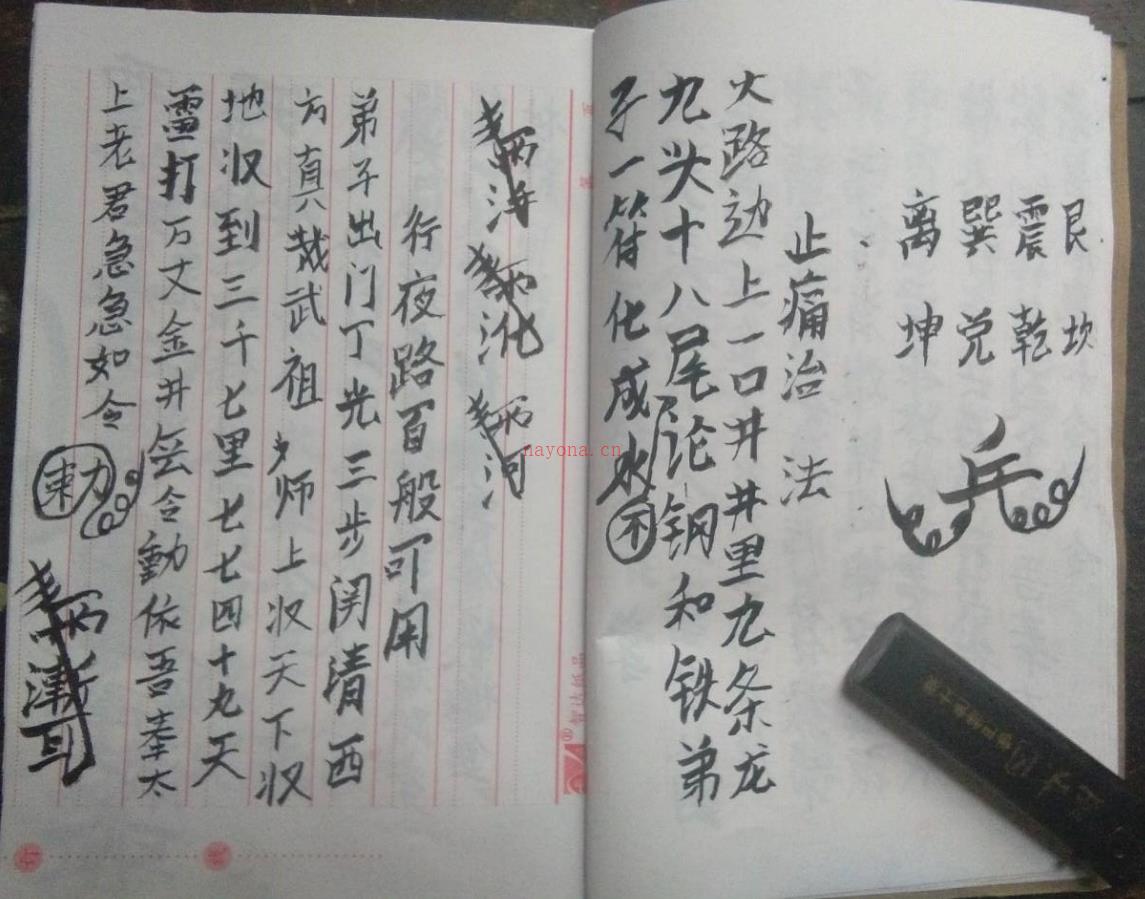 艮坎
震乾
巽兑
离坤
兵
止痛治法
大路边上一口井井里九条龙
九头十八尾论钢和铁弟
子一符化成水
行夜路百般可用
弟子出门丁光三步関清西
方真八哉武祖师上収天下収
地収到三千七里七七四十九天
雷打万丈金井会令動依吾奉太
上老君急急如令
nayona.cn